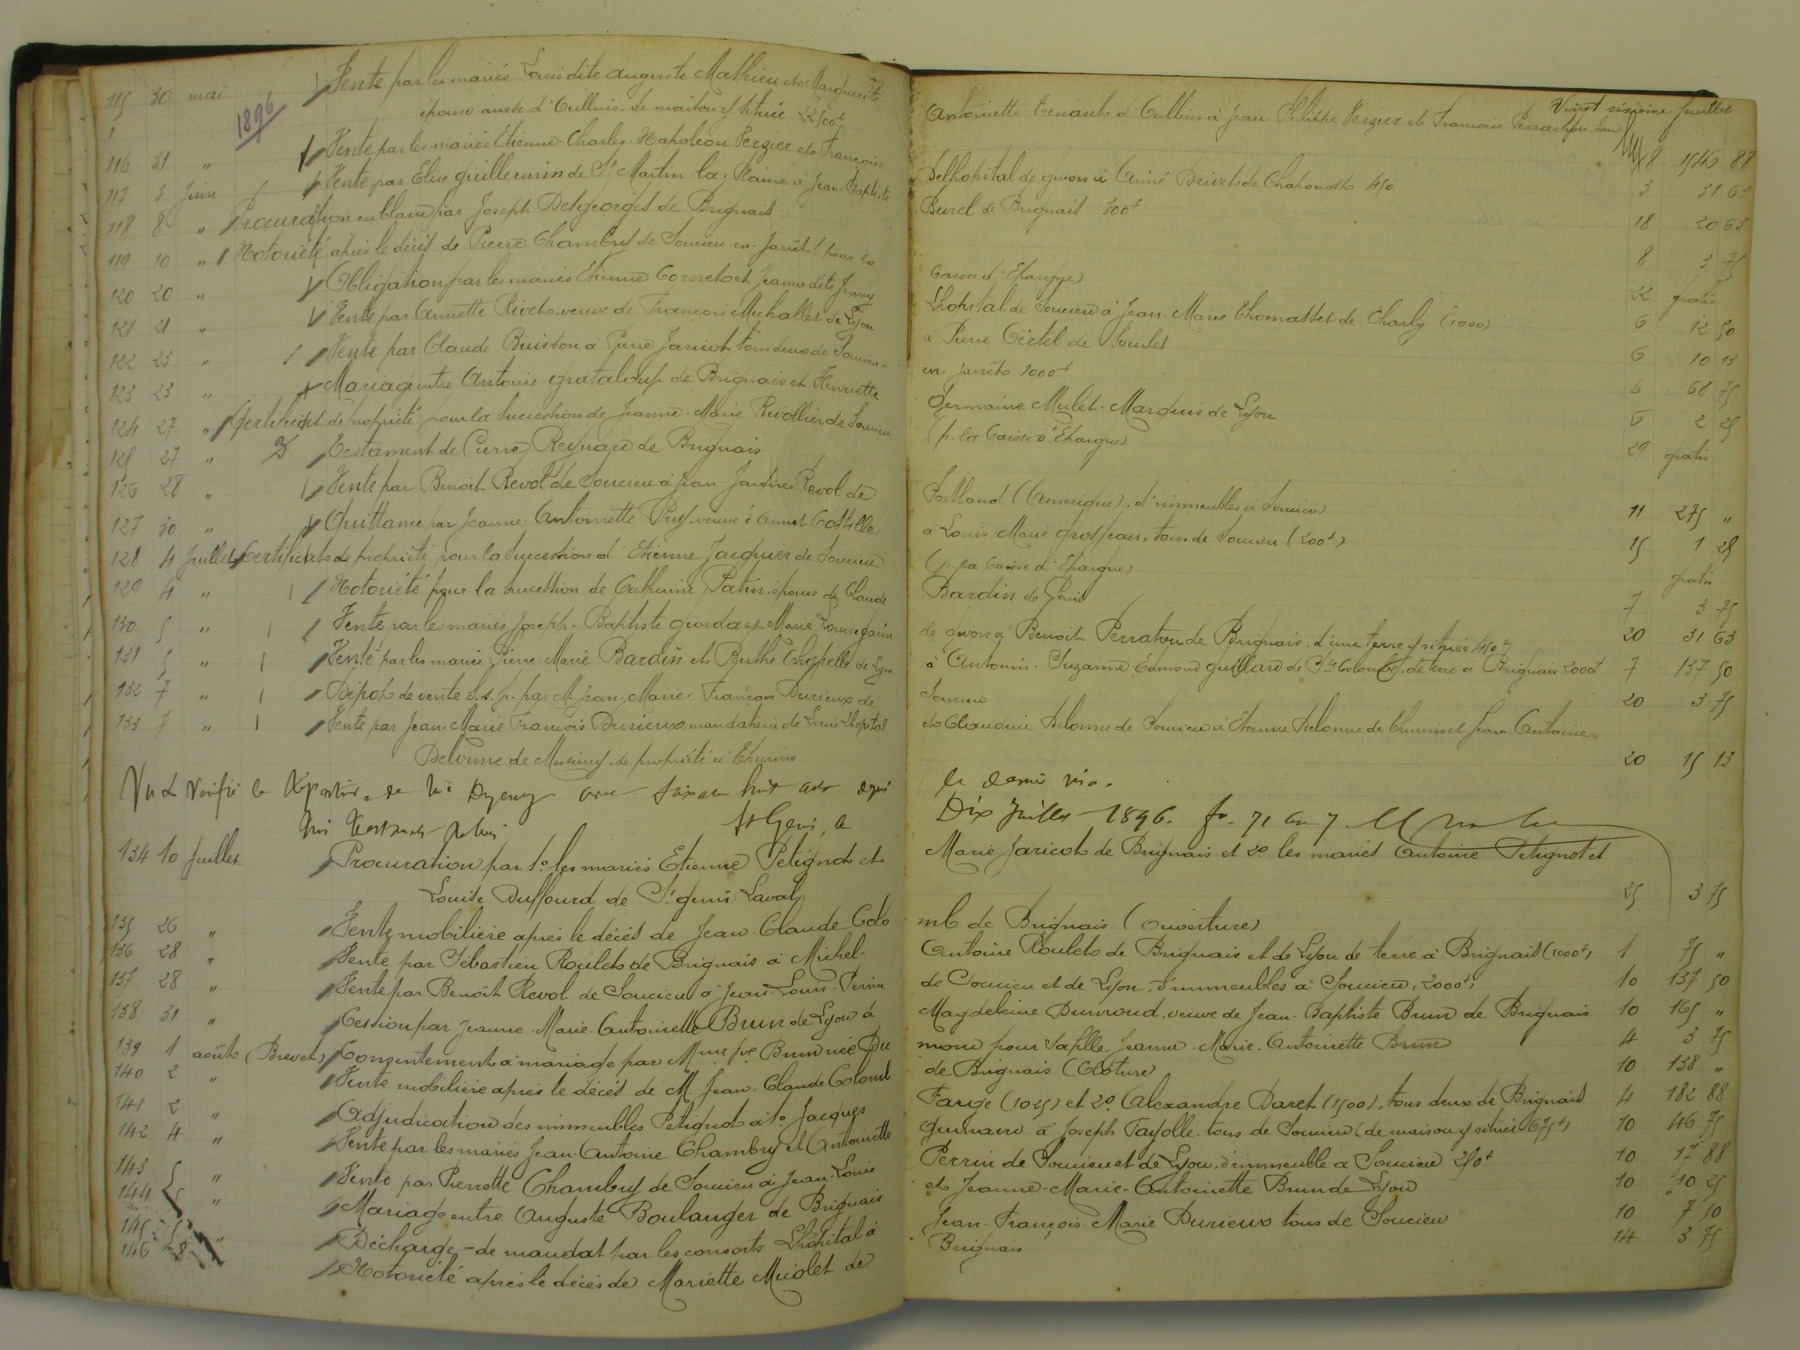 Vingt sixième feuillet
115 30 mai Vente par les mariés Louis dite auguste Mathieu et Marguerite
1896
épouse aussi d'Oullins de maison y située 22500f
Antoinette Tenant d'Oullins à Jean Philippe Verzier et Françoise 18 1546 88
116 31 " Vente par les mariés Etienne Charles Napoléon Verzier et Françoise
Delhopital de givors à Aimé Brivet de Chaponost 450 3 31 63
117 3 Juin Vente par Elise guillermin de St Martin la Plaine à Jean Baptiste
Burel de Brignais 300f 18 20 63
118 8 " Procuration en blanc par Joseph Desgeorges de Brignais 8 3 75
119 10 " Notoriété après le décès de Pierre Chambry de Soucieu en Jarrêt (pour la
Caisse d'Epargne) 22 gratis
120 20 " Obligation par les mariés Etienne Cornet et Jeanne dite Jenny
Lhopital de Soucieu à Jean Marie Thomasset de Charly (1000) 6 12 50
121 21 " Vente par Annette Rivet veuve de François Michallet de Lyon
à Pierre Oertel de 6 10 13
122 23 " Vente par Claude Buisson à Pierre Jaricot tous deux de Soucieu
en Jarrêt 1000f 6 68 75
123 23 " Mariage entre Antoine grataloup de Brignais et Henriette
Germaine Mulet Marquis de Lyon 6 2 25
124 27 " Certificat de propriété pour la succession de Jeanne Marie Rivollier de Soucieu
(p. la Caisse d'Epargne) 29 gratis
125 27 " Testament de Pierre Reynard de Brignais
126 28 " Vente par Benoit Revol de Soucieu à Jean Jacques Revol de
Portland (Amérique), d'immeubles à Soucieu 11 275 "
127 30 " Quittance par Jeanne Antoinette Puy veuve d'Annet Costille
à Louis Marie Grosjean, tous de Soucieu (200f) 15 1 25
128 4 Juillet Certificat de propriété pour la succession d'Etienne Jacquier de Soucieu
(p. la Caisse d'Epargne) gratis
129 4 " Notoriété pour la succession de Catherine Patin épouse de Claude
Bardin de Paris 7 3 75
130 5 " Vente par les mariés Joseph Baptiste giorda et Marie Louise
de givors à Benoit Perraton de Brignais, d'une terre y située 450f 20 31 63
131 5 " Vente par les mariés Pierre Marie Bardin et Berthe Chapelle de Lyon
à Antonin Suzanne Edmond guillard de Ste Colombe, de terre à Brignais 2000f 7 137 50
132 7 " Dépôt de vente s.s.p. par M. Jean Marie François Durieux de
Soucieu 20 3 75
133 7 " Vente par Jean Marie François Durieux mandataire de Louis Lhopital
et Claudine Delorme de Soucieu à Etienne Delorme de Thurins et Jean Antoine
Delorme de Messimy, de propriété à Thurins 20 15 13
Vu & Vérifié le Répertoire de Me avec soixante huit actes depuis
le dernier visa.
St Genis, le
Dix Juillet 1896. fo. 71 Cse 7.
134 10 Juillet Procuration par 1o. les mariés Etienne Pétignot et
Marie Jaricot de Brignais et 2o. les mariés Antoine Pétignot et
Louise Duffourd de St genis Laval 25 3 75
135 26 " Vente mobilière après le décès de Jean Claude Colo
mb de Brignais (ouverture)
136 28 " Vente par Sébastien Roulet de Brignais à Michel
Antoine Roulet de Brignais et de Lyon de terre à Brignais (1000f) 1 75 "
137 28 " Vente par Benoit Revol de Soucieu à Jean Louis Perrin
de Soucieu et de Lyon, d'immeubles à Soucieu, 2000f, 10 137 50
138 31 " Cession par Jeanne Marie Antoinette Brun de Lyon à
Magdeleine Dumond, veuve de Jean Baptiste Brun de Brignais 10 165 "
139 1 août (Brevet) Consentement à mariage par Mme Vve Brun née Du
mond pour sa fille Jeanne Marie Antoinette Brun 4 3 75
140 2 " Vente mobilière après le décès de M. Jean Claude Colomb
de Brignais (Clôture) 10 138 "
141 2 " Adjudication des immeubles Pétignot à 1o. Jacques
Farge (1025) et 2o. Alexandre Daret (1500), tous deux de Brignais 4 182 88
142 4 " Vente par les mariés Jean Antoine Chambry et Antoinette
Guinand à Joseph Fayolle, tous de Soucieu (de maison y située 675f) 10 46 75
143 5 " Vente par Pierrette Chambry de Soucieu à Jean Louis
Perrin de Soucieu et de Lyon, d'immeuble à Soucieu 250f 10 17 88
144 " Mariage entre Auguste Boulanger de Brignais
et Jeanne-Marie-Antoinette Brun de Lyon 10 10 25
145 5 " Décharge de mandat par les consorts Lhopital à
Jean François Marie Durieux tous de Soucieu 10 7 50
146 8 Notoriété après le décès de Mariette Miolet de
Brignais 14 3 75